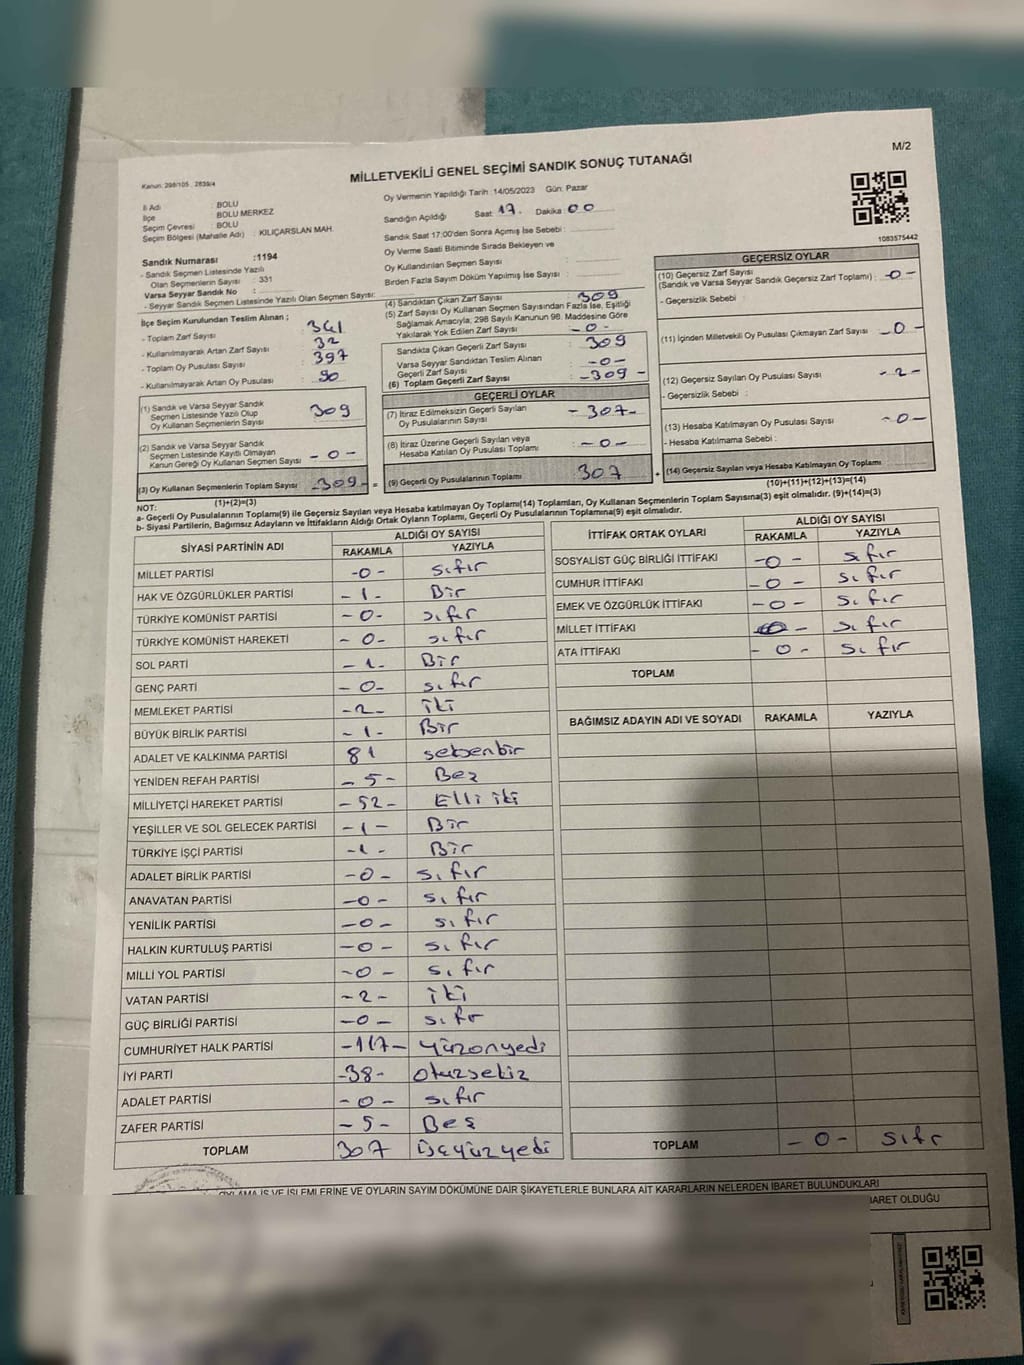 M/2
MİLLETVEKİLİ GENEL SEÇİMİ SANDIK SONUÇ TUTANAĞI
Kanun: 298/105 , 2839/4
İl Adı : BOLU
İlçe : BOLU MERKEZ
Seçim Çevresi : BOLU
Seçim Bölgesi (Mahalle Adı) : KILIÇARSLAN MAH.
Sandık Numarası :1194
- Sandık Seçmen Listesinde Yazılı
Olan Seçmenlerin Sayısı : 331
Varsa Seyyar Sandık No :
- Seyyar Sandık Seçmen Listesinde Yazılı Olan Seçmen Sayısı:
Oy Vermenin Yapıldığı Tarih :14/05/2023 Gün: Pazar
Sandığın Açıldığı Saat: 17. Dakika: 00
Sandık Saat 17:00'den Sonra Açılmış İse Sebebi :
Oy Verme Saati Bitiminde Sırada Bekleyen ve
Oy Kullandırılan Seçmen Sayısı :
Birden Fazla Sayım Döküm Yapılmış İse Sayısı :
1083575442
İlçe Seçim Kurulundan Teslim Alınan ;
- Toplam Zarf Sayısı : 341
- Kullanılmayarak Artan Zarf Sayısı : 32
- Toplam Oy Pusulası Sayısı : 397
- Kullanılmayarak Artan Oy Pusulası : 90
(1) Sandık ve Varsa Seyyar Sandık
Seçmen Listesinde Yazılı Olup
Oy Kullanan Seçmenlerin Sayısı 309
(2) Sandık ve Varsa Seyyar Sandık
Seçmen Listesinde Kayıtlı Olmayan
Kanun Gereği Oy Kullanan Seçmen Sayısı - 0 -
(3) Oy Kullanan Seçmenlerin Toplam Sayısı -309- =
(1)+(2)=(3)
(4) Sandıktan Çıkan Zarf Sayısı : 309
(5) Zarf Sayısı Oy Kullanan Seçmen Sayısından Fazla İse, Eşitliği
Sağlamak Amacıyla, 298 Sayılı Kanunun 98. Maddesine Göre
Yakılarak Yok Edilen Zarf Sayısı : -0-
Sandıkta Çıkan Geçerli Zarf Sayısı : 309
Varsa Seyyar Sandıktan Teslim Alınan
Geçerli Zarf Sayısı : -0-
(6) Toplam Geçerli Zarf Sayısı : -309-
GEÇERLİ OYLAR
(7) İtiraz Edilmeksizin Geçerli Sayılan
Oy Pusulalarının Sayısı : - 307-
(8) İtiraz Üzerine Geçerli Sayılan veya
Hesaba Katılan Oy Pusulası Toplamı : -0-
(9) Geçerli Oy Pusulalarının Toplamı : 307 +
GEÇERSİZ OYLAR
(10) Geçersiz Zarf Sayısı
(Sandık ve Varsa Seyyar Sandık Geçersiz Zarf Toplamı) : -0-
- Geçersizlik Sebebi :
(11) İçinden Milletvekili Oy Pusulası Çıkmayan Zarf Sayısı : -0-
(12) Geçersiz Sayılan Oy Pusulası Sayısı : -2-
- Geçersizlik Sebebi :
(13) Hesaba Katılmayan Oy Pusulası Sayısı : -0-
- Hesaba Katılmama Sebebi :
(14) Geçersiz Sayılan veya Hesaba Katılmayan Oy Toplamı
(10)+(11)+(12)+(13)=(14)
NOT:
a- Geçerli Oy Pusulalarının Toplamı(9) ile Geçersiz Sayılan veya Hesaba katılmayan Oy Toplamı(14) Toplamları, Oy Kullanan Seçmenlerin Toplam Sayısına(3) eşit olmalıdır. (9)+(14)=(3)
b- Siyasi Partilerin, Bağımsız Adayların ve İttifakların Aldığı Ortak Oyların Toplamı, Geçerli Oy Pusulalarının Toplamına(9) eşit olmalıdır.
SİYASİ PARTİNİN ADI ALDIĞI OY SAYISI
RAKAMLA YAZIYLA
MİLLET PARTİSİ -0- sıfır
HAK VE ÖZGÜRLÜKLER PARTİSİ -1- Bir
TÜRKİYE KOMÜNİST PARTİSİ -0- sıfır
TÜRKİYE KOMÜNİST HAREKETİ -0- sıfır
SOL PARTİ -1- Bir
GENÇ PARTİ -0- sıfır
MEMLEKET PARTİSİ -2- iki
BÜYÜK BİRLİK PARTİSİ -1- Bir
ADALET VE KALKINMA PARTİSİ 81 seksenbir
YENİDEN REFAH PARTİSİ -5- Beş
MİLLİYETÇİ HAREKET PARTİSİ -52- Elli iki
YEŞİLLER VE SOL GELECEK PARTİSİ -1- Bir
TÜRKİYE İŞÇİ PARTİSİ -1- Bir
ADALET BİRLİK PARTİSİ -0- sıfır
ANAVATAN PARTİSİ -0- sıfır
YENİLİK PARTİSİ -0- sıfır
HALKIN KURTULUŞ PARTİSİ -0- sıfır
MİLLİ YOL PARTİSİ -0- sıfır
VATAN PARTİSİ -2- iki
GÜÇ BİRLİĞİ PARTİSİ -0- sıfır
CUMHURİYET HALK PARTİSİ -117- yüzonyedi
İYİ PARTİ -38- otuzsekiz
ADALET PARTİSİ -0- sıfır
ZAFER PARTİSİ -5- Beş
TOPLAM 307 üçyüzyedi
İTTİFAK ORTAK OYLARI ALDIĞI OY SAYISI
RAKAMLA YAZIYLA
SOSYALİST GÜÇ BİRLİĞİ İTTİFAKI -0- sıfır
CUMHUR İTTİFAKI -0- sıfır
EMEK VE ÖZGÜRLÜK İTTİFAKI -0- sıfır
MİLLET İTTİFAKI 0- sıfır
ATA İTTİFAKI -0- sıfır
TOPLAM
BAĞIMSIZ ADAYIN ADI VE SOYADI RAKAMLA YAZIYLA
TOPLAM -0- sıfr
OYLAMA İŞ VE İŞLEMLERİNE VE OYLARIN SAYIM DÖKÜMÜNE DAİR ŞİKAYETLERLE BUNLARA AİT KARARLARIN NELERDEN İBARET BULUNDUKLARI
İBARET OLDUĞU